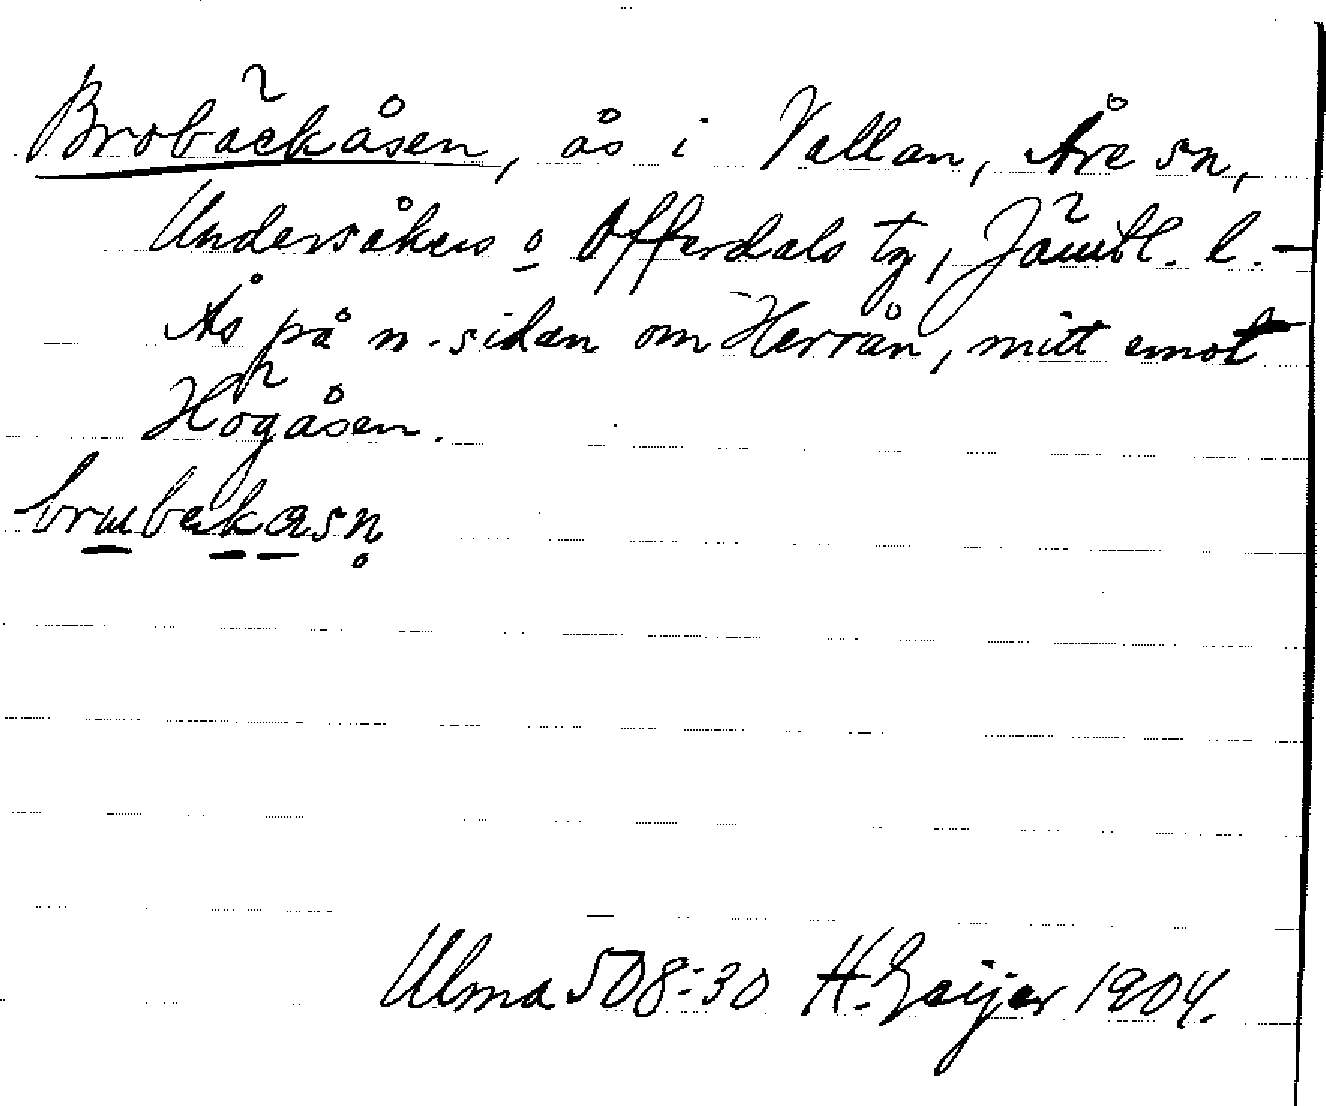 Brobäckåsen, ås i Vallan, Åre sn,
Undersåkers o Offerdals tg, Jämtl. l. -
Ås på n. sidan om Herrån, mitt emot
Högåsen.
brubækasn̥
Ulma 508:30 H. Geijer 1904.